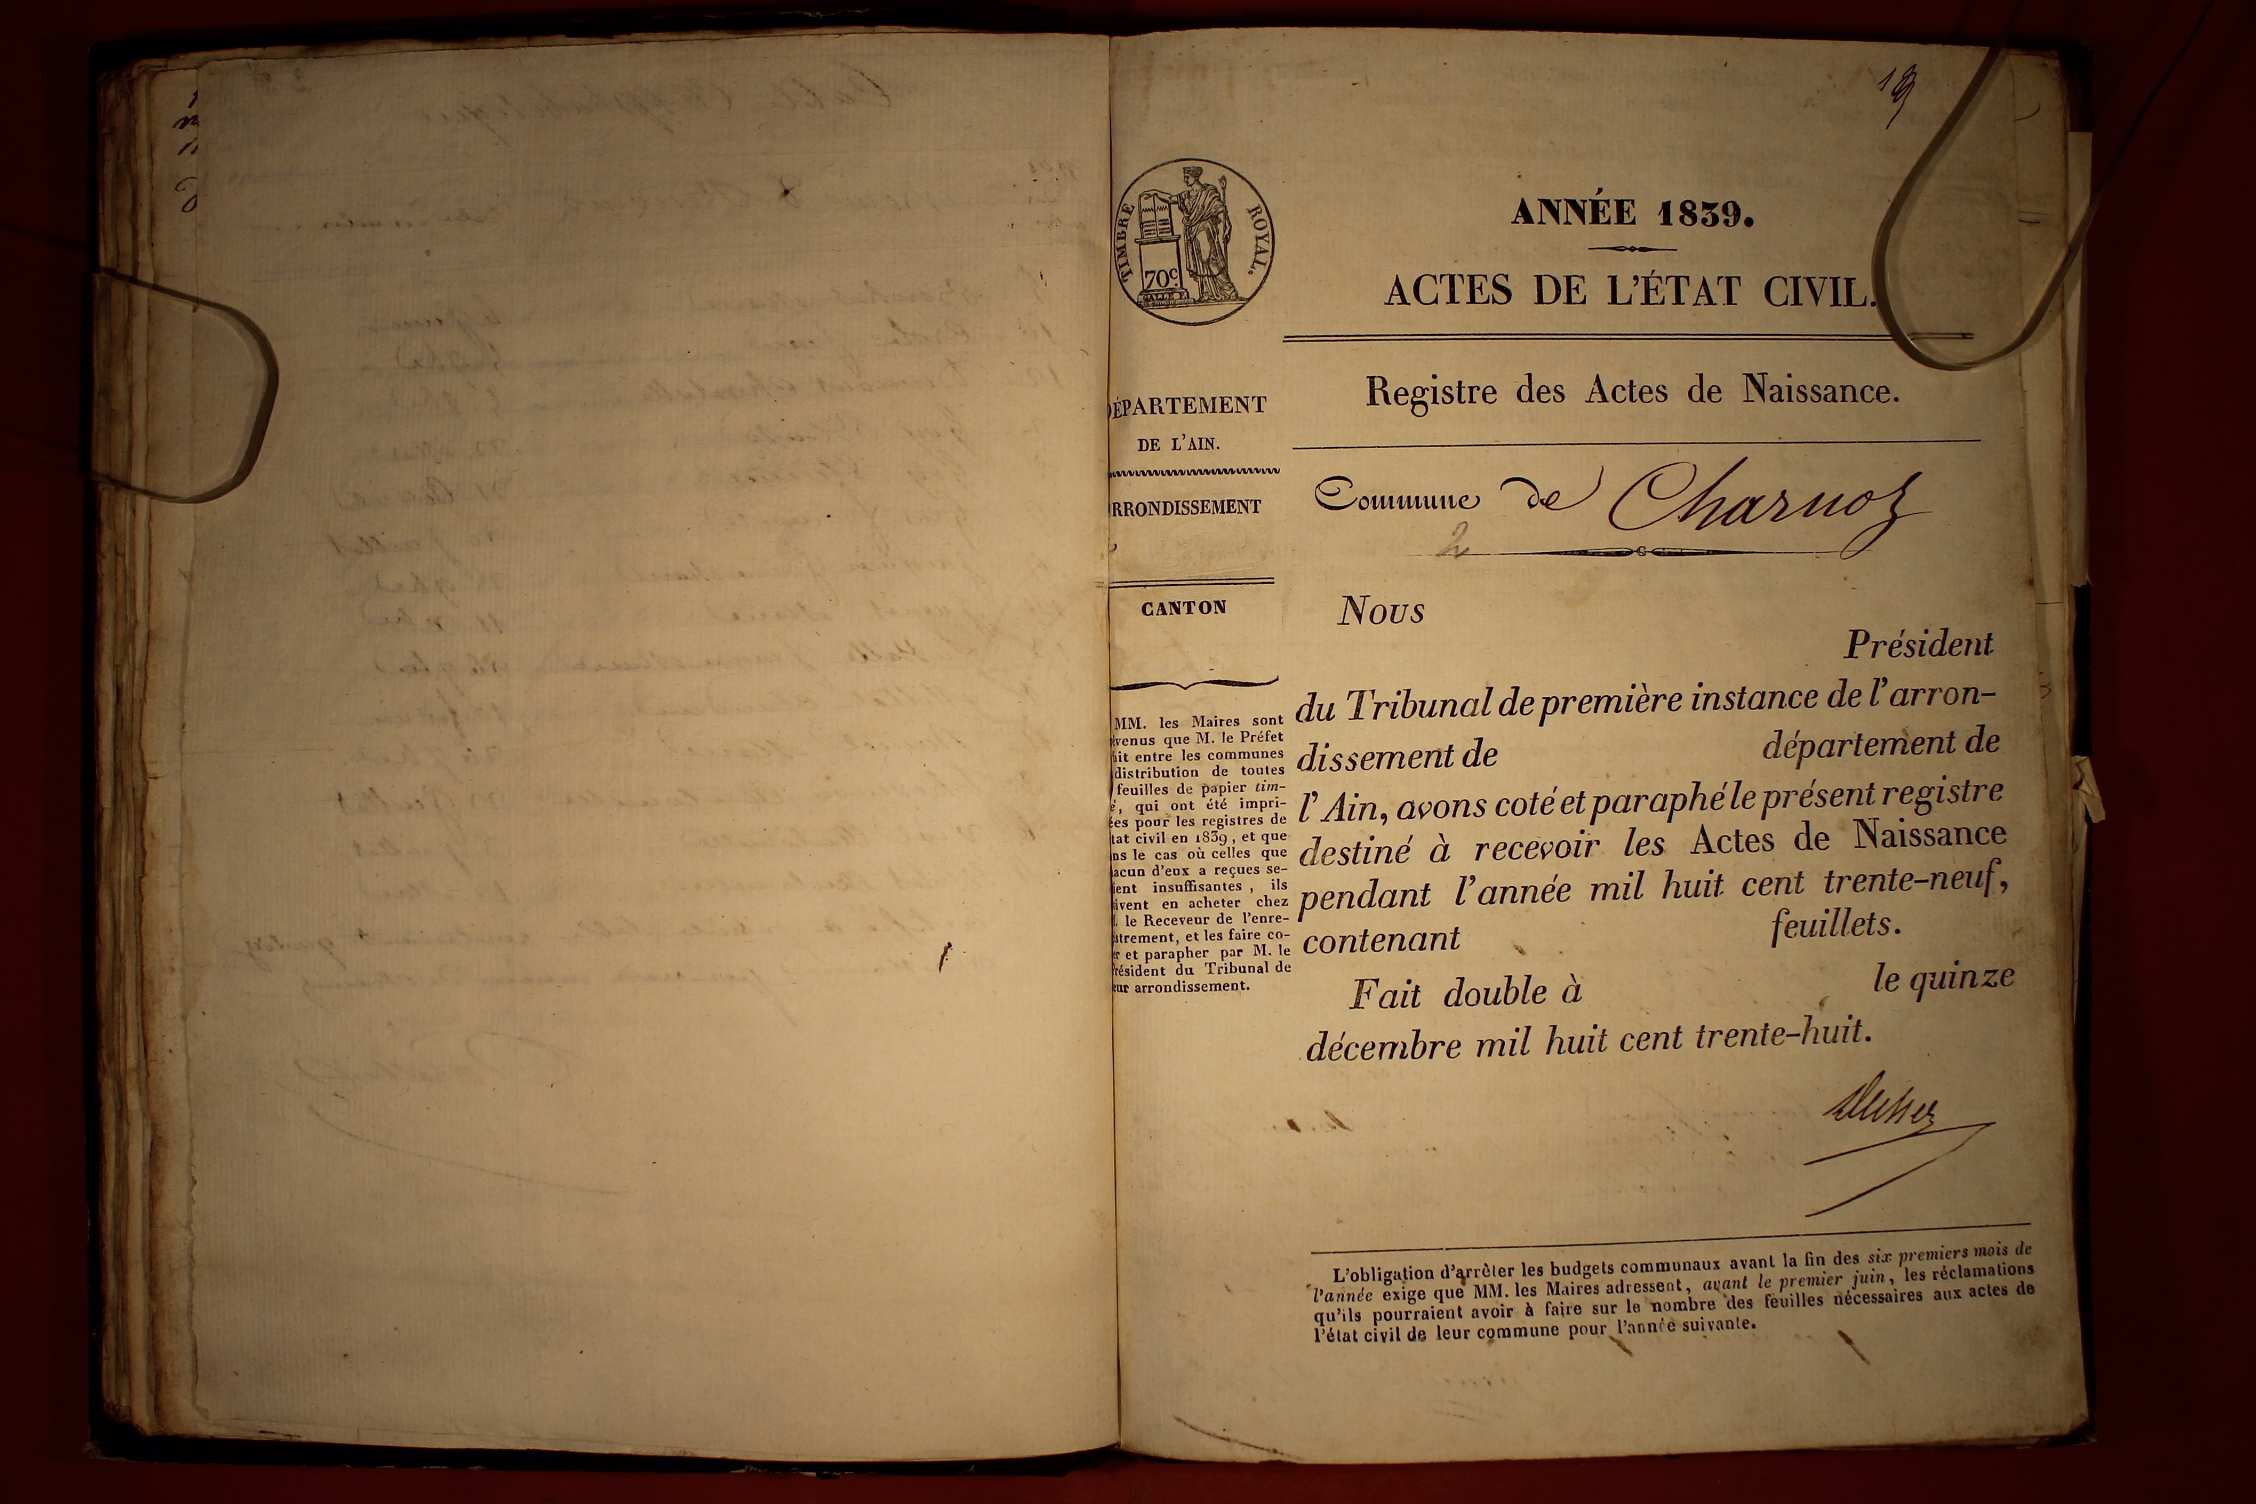 TIMBRE ROYAL.
70c
ANNÉE 1839.
ACTES DE L'ÉTAT CIVIL.
Registre des Actes de Naissance.
Commune de Charnoz
ÉPARTEMENT
DE L'AIN.
RRONDISSEMENT
CANTON
MM. les Maires sont
venus que M. le Préfet
it entre les communes
distribution de toutes
feuilles de papier tim-
é, qui ont été impri-
ées pour les registres de
tat civil en 1839, et que
ns le cas où celles que
acun d'eux a reçues se-
ient insuffisantes, ils
ivent en acheter chez
. le Receveur de l'enre-
strement, et les faire co-
r et parapher par M. le
résident du Tribunal de
eur arrondissement.
Nous
Président
du Tribunal de première instance de l'arron-
dissement de département de
l'Ain, avons coté et paraphé le présent registre
destiné à recevoir les Actes de Naissance
pendant l'année mil huit cent trente-neuf,
contenant feuillets.
Fait double à le quinze
décembre mil huit cent trente-huit.
L'obligation d'arrêter les budgets communaux avant la fin des six premiers mois de
l'année exige que MM. les Maires adressent, avant le premier juin, les réclamations
qu'ils pourraient avoir à faire sur le nombre des feuilles nécessaires aux actes de
l'état civil de leur commune pour l'année suivante.